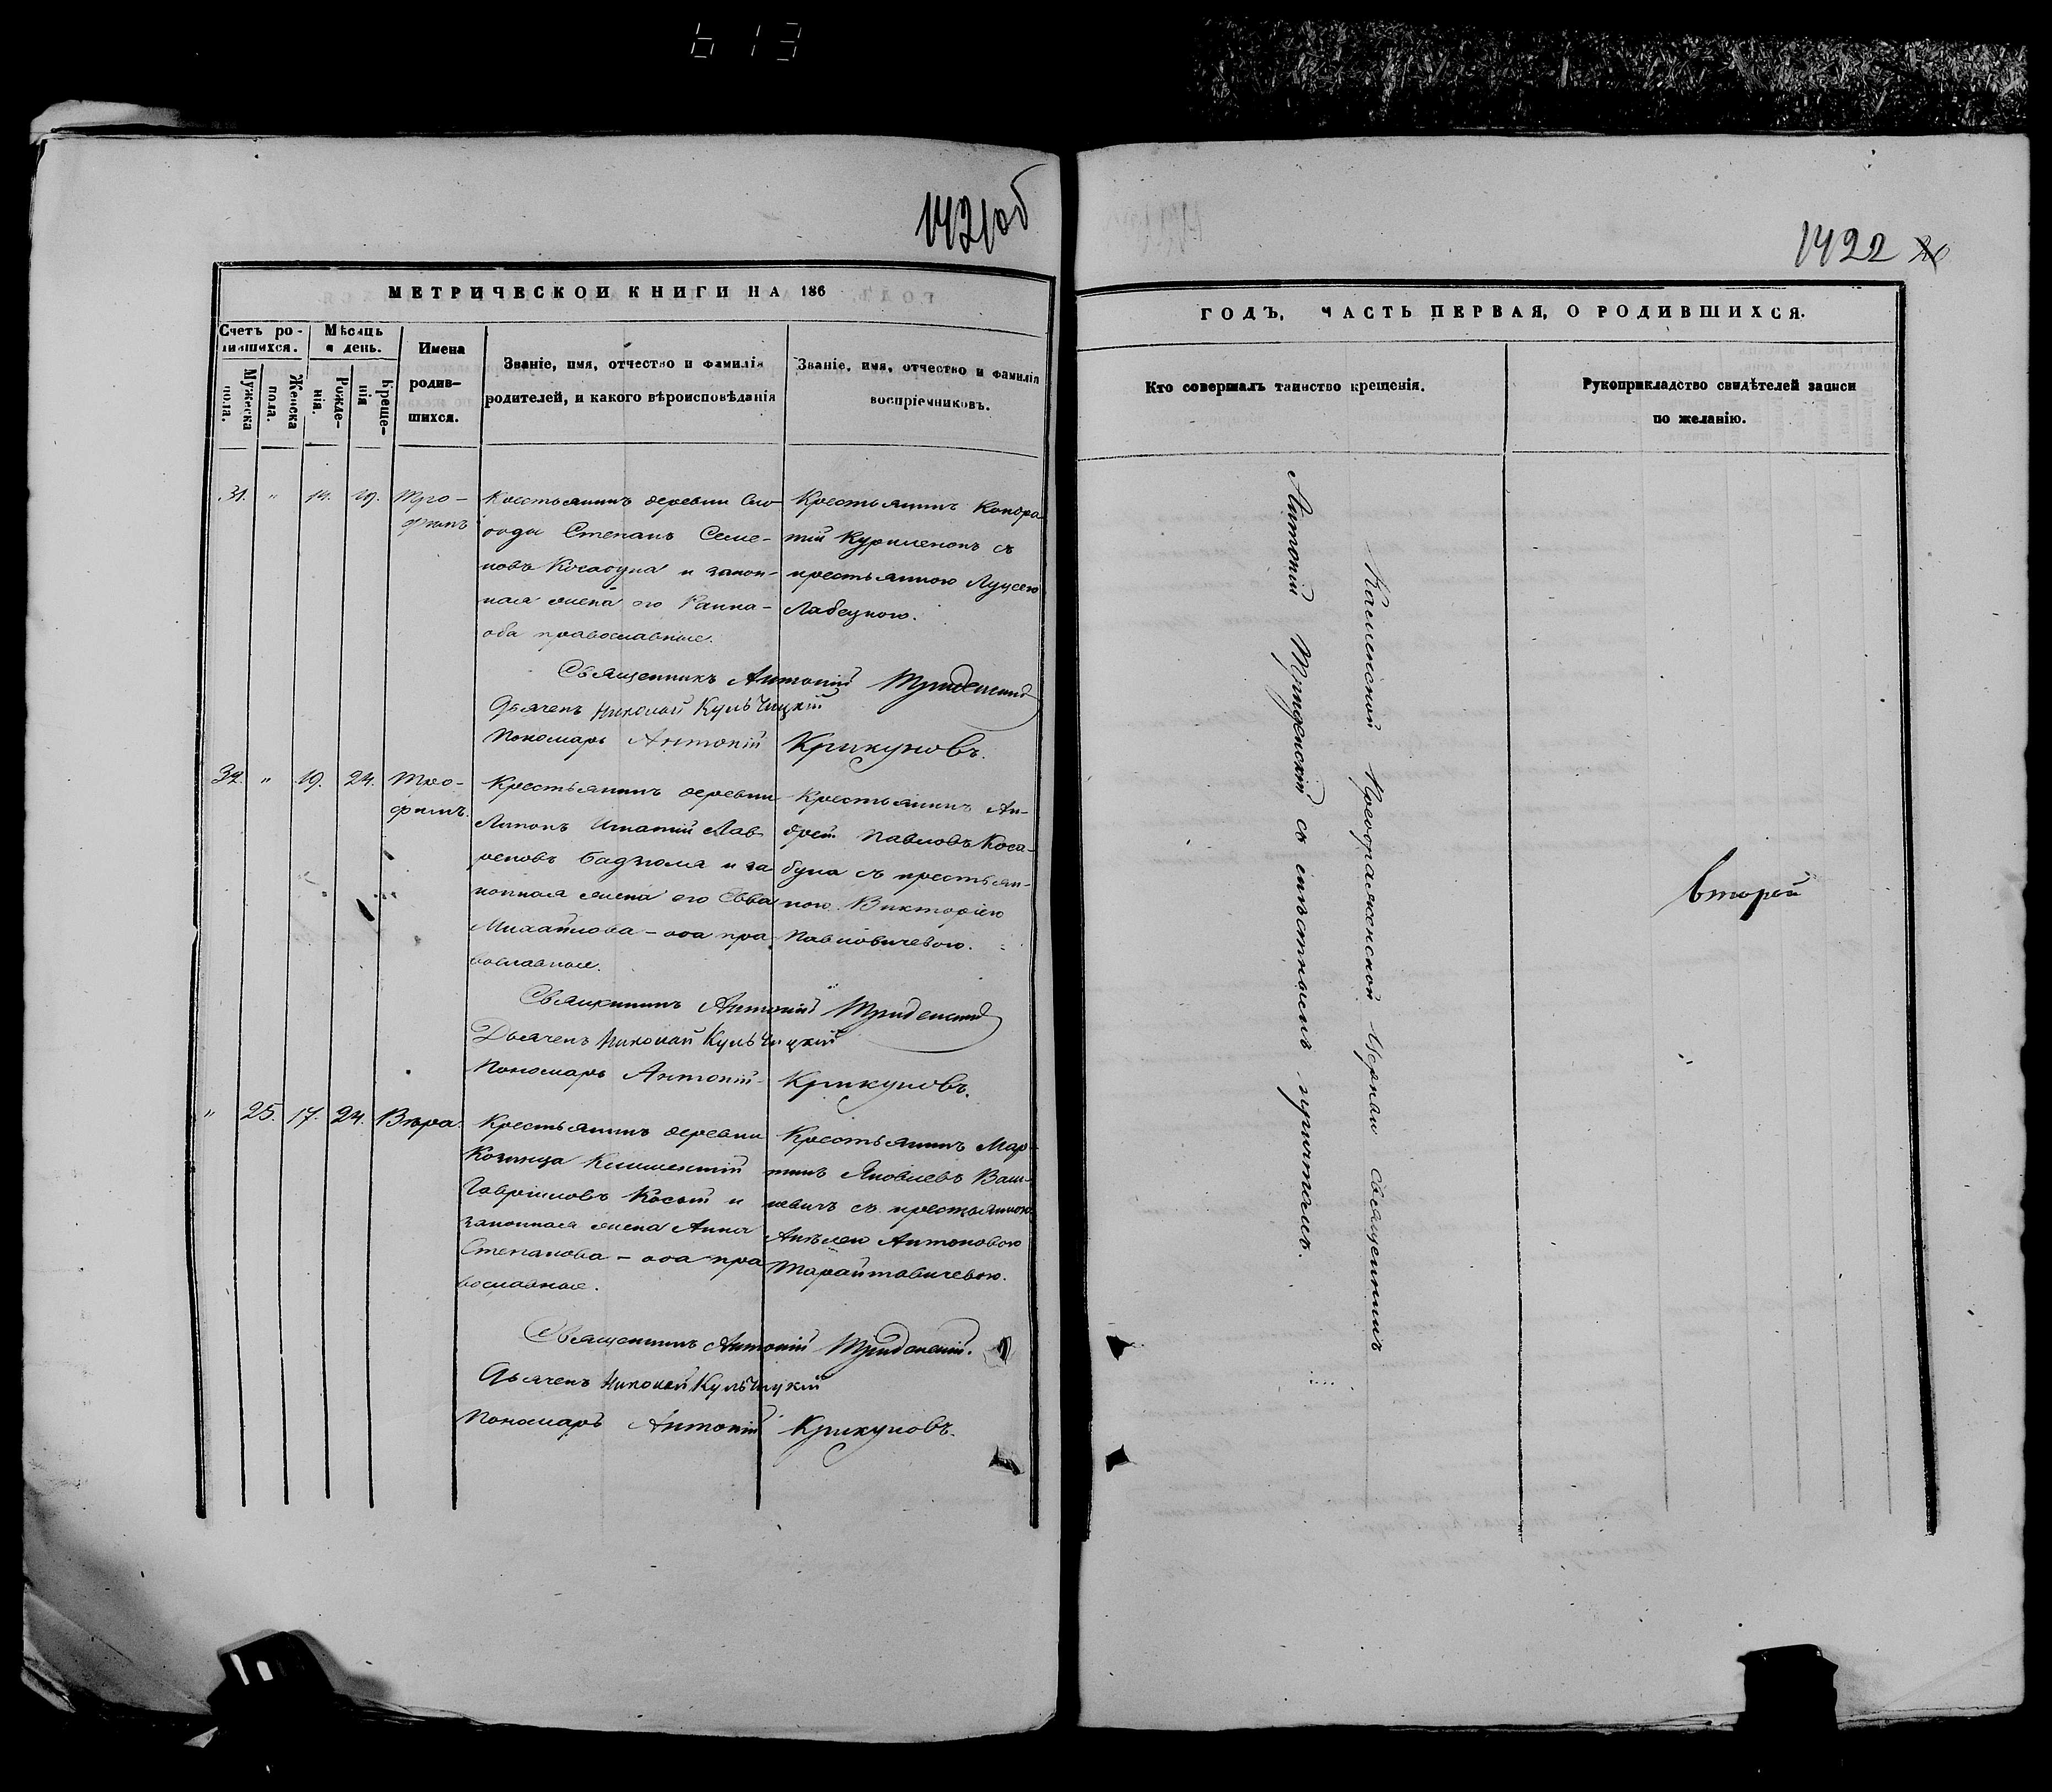 613
1421об
МЕТРИЧЕСКОЙ КНИГИ НА 186
Счетъ ро-
дившихся.
Мѣсяцъ
и день.
Мужеска
пола.
Женска
пола.
Рожде-
нія.
Креще-
нія
Имена
родив-
шихся.
Званіе, имя, отчество и фамилія
родителей, и какого вѣроисповѣданія
Званіе, имя, отчество и фамилія
воспріемниковъ.
31. " 14. 19.
Тро-
фимъ
Крестьянинъ деревни Сло-
боды Степанъ Семе-
новъ Косабуца и закон-
ная жена его Ганна-
оба православные.
Крестьянинъ Кондра-
тій Куриленокъ съ
крестьянкою Луцею
Лабецкою.
Священникъ Антоній Триденскій
Дьячекъ Николай Кульчицкій
Пономарь Антоній Крикуновъ.
32. " 19. 24.
Тро-
фимъ.
Крестьянинъ деревни
Игнатій Лав-
реновъ и за
конная жена его Евва
Михайлова - оба пра
вославные.
Крестьянинъ Ан-
дрей Павловъ Коса-
буца съ крестьян-
кою Викторіею
Павловичевою.
Священникъ Антоній Триденскій
Дьячекъ Николай Кульчицкій
Пономарь Антоній Крикуновъ.
" 25. 17. 24. Вѣра.
Крестьянинъ деревни
Климентій
Гавриловъ Косый и
законная жена Анна
Степанова - оба пра
вославные.
Крестьянинъ Мар-
тинъ Яковлевъ Ваш-
кевичъ съ крестьянкою
Анѣлею Антоновою
Тарайтовичевою.
Священникъ Антоній Триденскій.
Дьячекъ Николай Кульчицкій
Пономарь Антоній Крикуновъ.
1422 20
ГОДЪ, ЧАСТЬ ПЕРВАЯ, О РОДИВШИХСЯ.
Кто совершалъ таинство крещенія.
Рукоприкладство свидѣтелей записи
по желанію.
Каменской Преображенской Церкви священникъ
Антоній Триденскій съ причтомъ.
второй